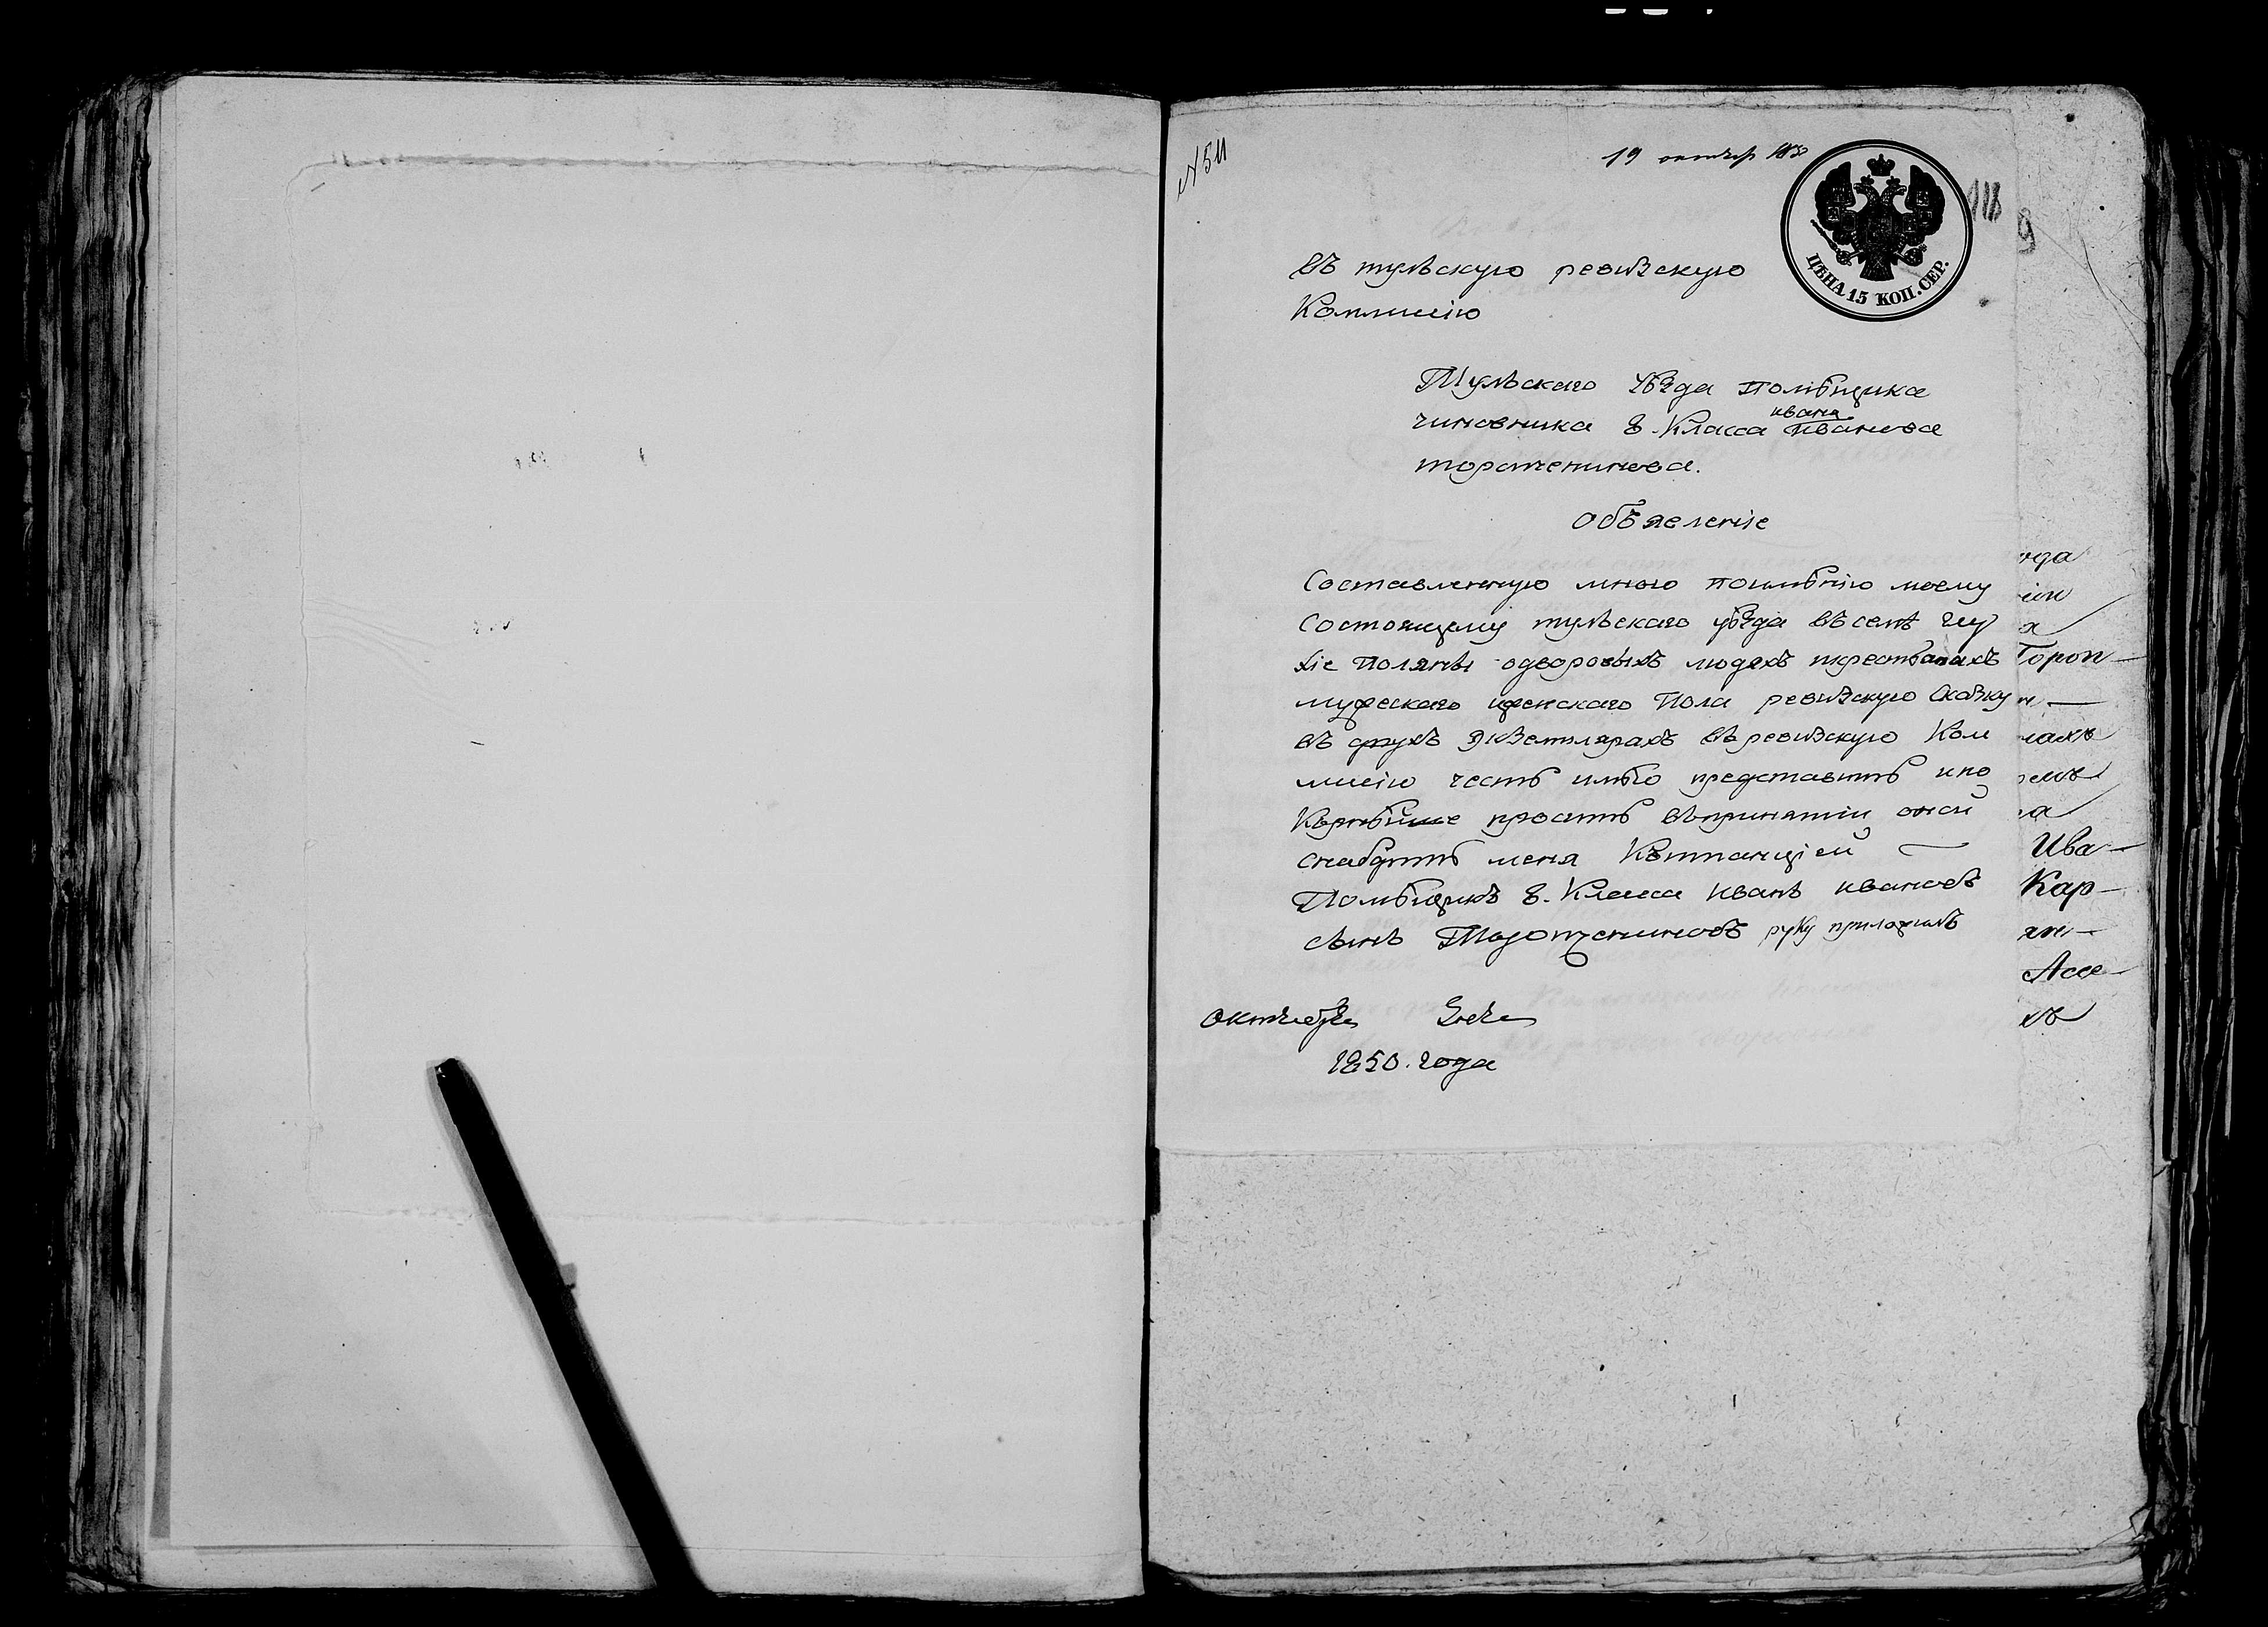 N 511
19 октябр 1850
118
9
ЦѢНА 15 КОП. СЕР.
въ тульскую ревизскую
Коммисію
Тульскаго уѣзда помѣщика
ивана
чиновника 8. Класса иванова
торопченинова.
Объявленіе
Составленную мною поимѣнію моему
состоящему тульскаго уѣзда въ селѣ глу
хіе поляны одворовыхъ людяхъ икрестьянахъ
мужескаго иженскаго пола ревизскую сказку
въ двухъ экземплярахъ въ ревизскую Ком
мисію честь имѣю представить ипо
корнѣйше просить впринятіи оной
снабдить меня Квитанціей
Помѣщикъ 8. Класса иванъ ивановъ
сынъ Торопчениновъ руку приложилъ
октября дня
1850. года
года
Тороп
Ива
Кар
Асе